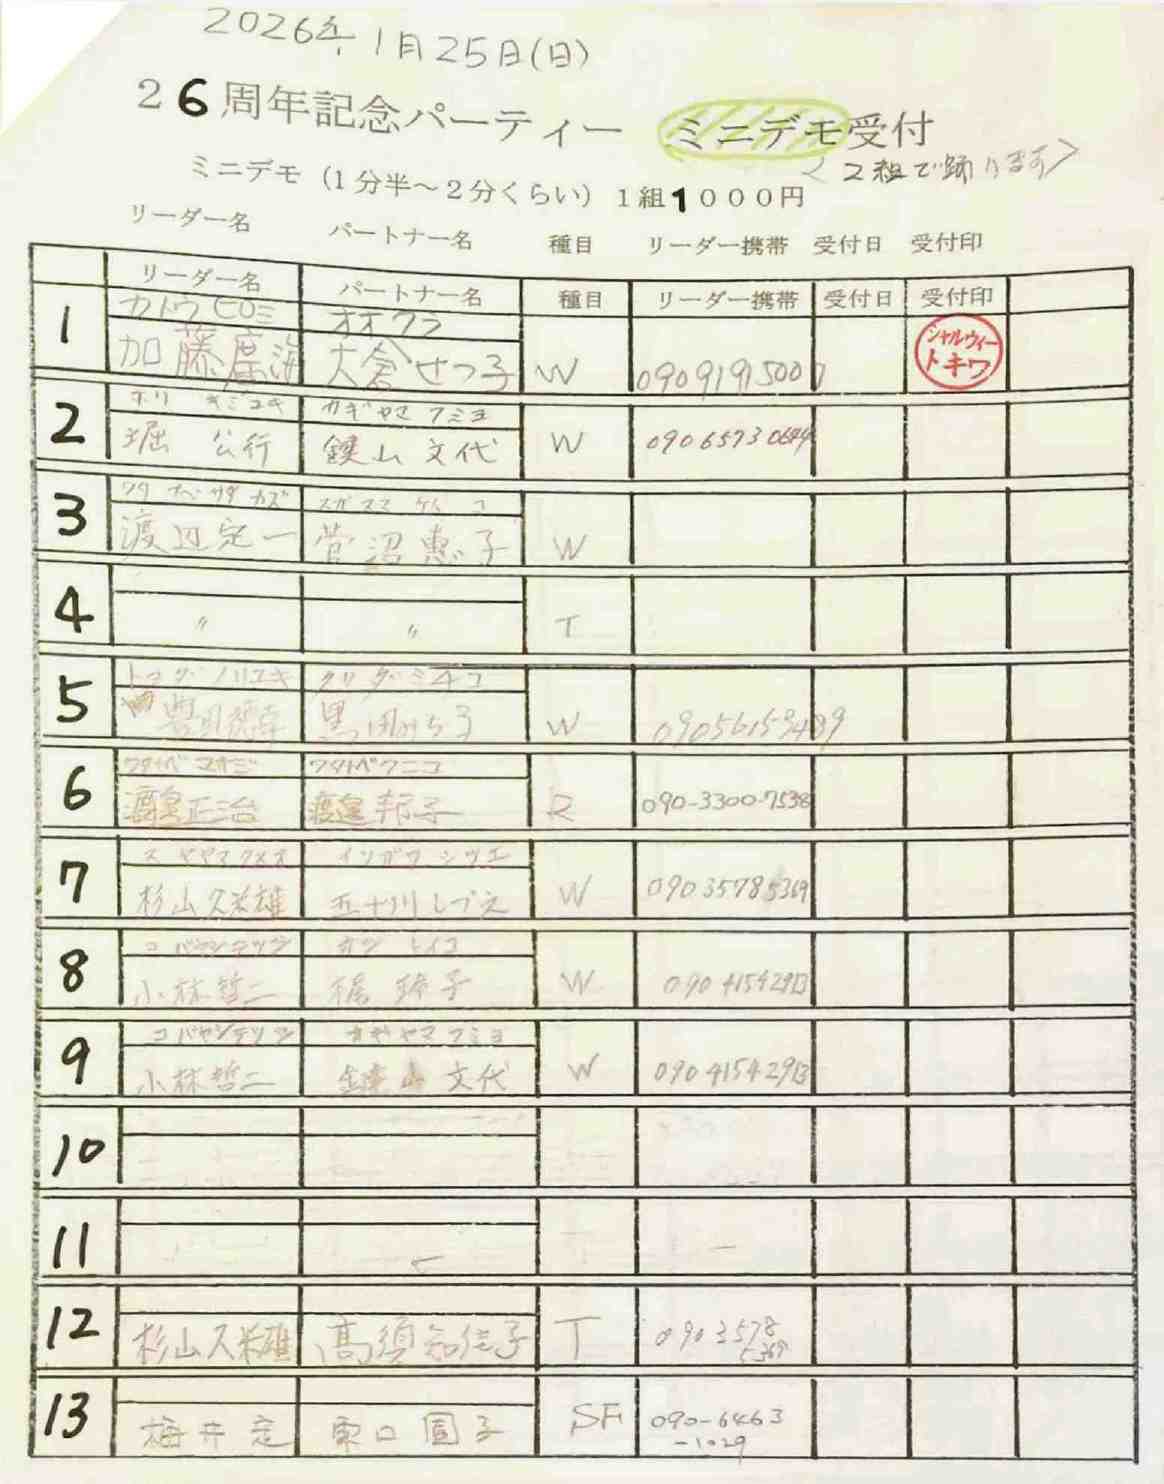 2026年1月25日(日)
26周年記念パーティー ミニデモ受付
<2組で踊ります>
ミニデモ（1分半～2分くらい）1組1000円
リーダー名 パートナー名 種目 リーダー携帯 受付日 受付印
リーダー名 パートナー名 種目 リーダー携帯 受付日 受付印
カトウ ヒロミ オオクラ
1 加藤廣海 大倉せつ子 W 09091915007 シャルウィー トキワ
ホリ キミユキ カギヤマ フミヨ
2 堀 公行 鍵山 文代 W 0906573
ワタナベ サダカズ スガヌマ ケイコ
3 渡辺定一 菅沼 恵子 W
4 〃 〃 T
ノリユキ クリダ ミチコ
5 みち子 W 09056159489
ワタナベ マサジ ワタナベクニコ
6 渡邉正治 渡邉邦子 R 090-3300-7538
スギヤマクメオ イソガワ シヅエ
7 杉山久米雄 五十川しづえ W 09035785369
コバヤシテツジ
8 小林哲二 W 090 4154 2913
コバヤシテツジ カギヤマ フミヨ
9 小林哲二 鍵山 文代 W 090 4154 2913
10
11
12 杉山久米雄 高須知佳子 T 0903578
5369
13 SF 090-6463
-1029